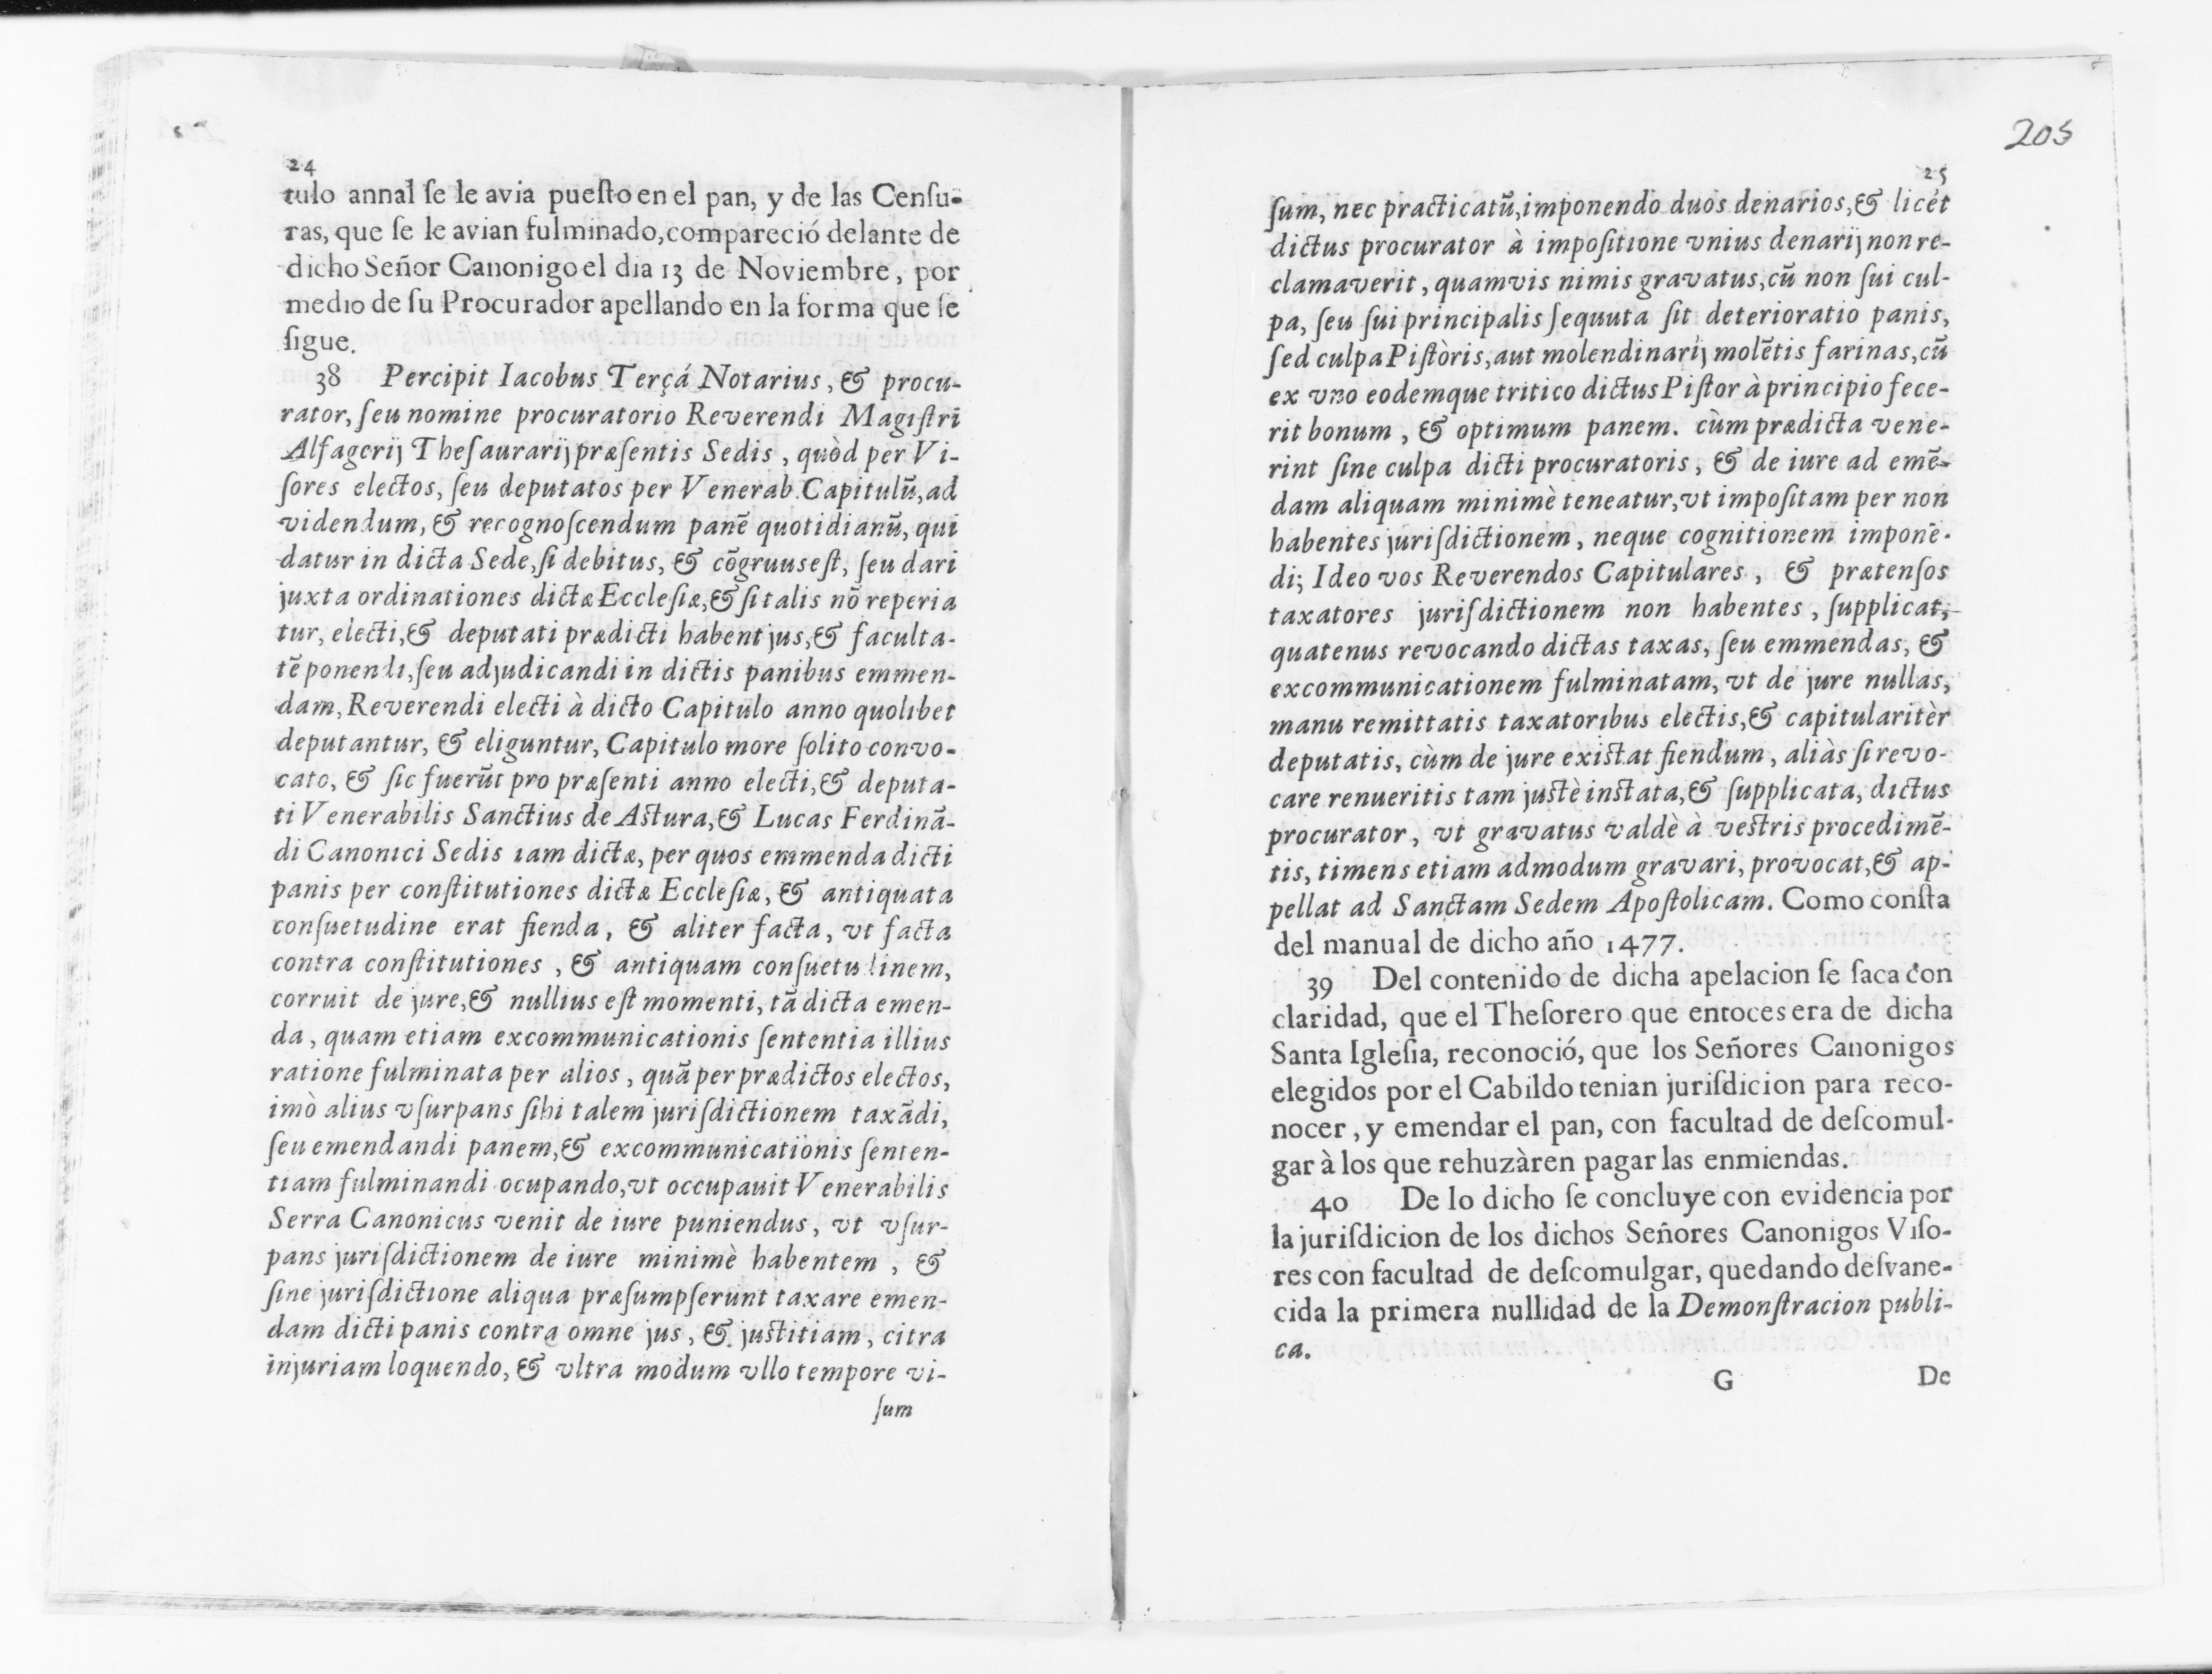 24
tulo annal ſe le avia pueſto en el pan, y de las Cenſu-
ras, que ſe le avian fulminado, compareció delante de
dicho Señor Canonigo el dia 13 de Noviembre, por
medio de ſu Procurador apellando en la forma que ſe
ſigue.
38 Percipit Iacobus Terçá Notarius, & procu-
rator, ſeu nomine procuratorio Reverendi Magiſtri
Alfagerij Theſaurarij præſentis Sedis, quòd per Vi-
ſores electos, ſeu deputatos per Venerab. Capitulũ, ad
videndum, & recognoſcendum panẽ quotidianũ, qui
datur in dicta Sede, ſi debitus, & cõgruus eſt, ſeu dari
juxta ordinationes dictæ Eccleſiæ, & ſi talis nõ reperia
tur, electi, & deputati prædicti habent jus, & faculta-
tẽ ponendi, ſeu adjudicandi in dictis panibus emmen-
dam, Reverendi electi à dicto Capitulo anno quolibet
deputantur, & eliguntur, Capitulo more ſolito convo-
cato, & ſic fuerũt pro præſenti anno electi, & deputa-
ti Venerabilis Sanctius de Astura, & Lucas Ferdinã-
di Canonici Sedis iam dictæ, per quos emmenda dicti
panis per conſtitutiones dictæ Eccleſiæ, & antiquata
conſuetudine erat fienda, & aliter facta, vt facta
contra conſtitutiones, & antiquam conſuetudinem,
corruit de jure, & nullius eſt momenti, tã dicta emen-
da, quam etiam excommunicationis ſententia illius
ratione fulminata per alios, quã per prædictos electos,
imò alius vſurpans ſibi talem juriſdictionem taxãdi,
ſeu emendandi panem, & excommunicationis ſenten-
tiam fulminandi ocupando, vt occupauit Venerabilis
Serra Canonicus venit de iure puniendus, vt vſur-
pans juriſdictionem de iure minimè habentem, &
ſine juriſdictione aliqua præſumpſerunt taxare emen-
dam dicti panis contra omne jus, & justitiam, citra
injuriam loquendo, & vltra modum vllo tempore vi-
ſum
205
25
ſum, nec practicatũ, imponendo duos denarios, & licét
dictus procurator à impoſitione vnius denarij non re-
clamaverit, quamvis nimis gravatus, cũ non ſui cul-
pa, ſeu ſui principalis ſequuta ſit deterioratio panis,
ſed culpa Piſtòris, aut molendinarij molẽtis farinas, cũ
ex vno eodemque tritico dictus Piſtor à principio fece-
rit bonum, & optimum panem. cùm prædicta vene-
rint ſine culpa dicti procuratoris, & de iure ad emẽ-
dam aliquam minimè teneatur, vt impoſitam per non
habentes juriſdictionem, neque cognitionem imponẽ-
di; Ideo vos Reverendos Capitulares, & prætenſos
taxatores juriſdictionem non habentes, ſupplicat,
quatenus revocando dictas taxas, ſeu emmendas, &
excommunicationem fulminatam, vt de jure nullas,
manu remittatis taxatoribus electis, & capitularitèr
deputatis, cùm de jure existat fiendum, aliàs ſi revo-
care renueritis tam justè instata, & ſupplicata, dictus
procurator, vt gravatus valdè à vestris procedimẽ-
tis, timens etiam admodum gravari, provocat, & ap-
pellat ad Sanctam Sedem Apoſtolicam. Como conſta
del manual de dicho año 1477.
39 Del contenido de dicha apelacion ſe ſaca con
claridad, que el Theſorero que entoces era de dicha
Santa Igleſia, reconoció, que los Señores Canonigos
elegidos por el Cabildo tenian juriſdicion para reco-
nocer, y emendar el pan, con facultad de deſcomul-
gar à los que rehuzàren pagar las enmiendas.
40 De lo dicho ſe concluye con evidencia por
la juriſdicion de los dichos Señores Canonigos Viſo-
res con facultad de deſcomulgar, quedando deſvane-
cida la primera nullidad de la Demonſtracion publi-
ca.
G De